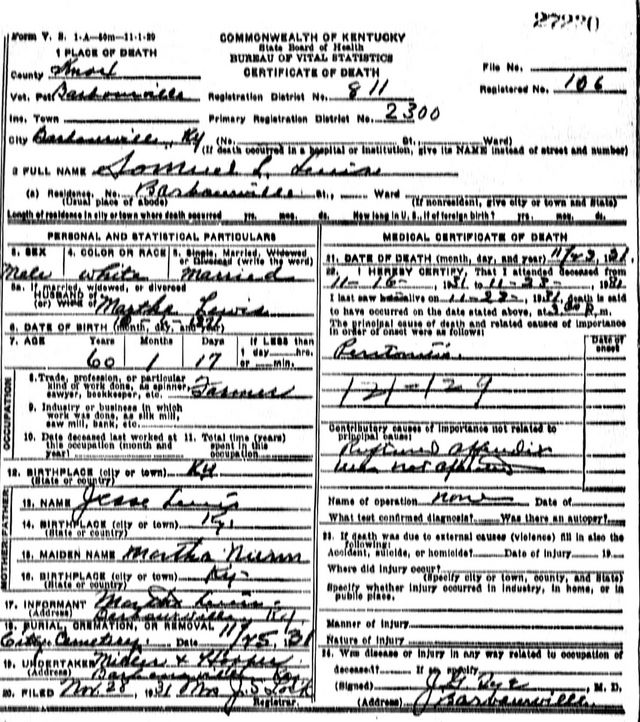 27220
Form V. S. 1-A-50m-11-1-29
COMMONWEALTH OF KENTUCKY
State Board of Health
BUREAU OF VITAL STATISTICS
CERTIFICATE OF DEATH
1 PLACE OF DEATH
County Knox
File No.
Registered No. 106
Vot. Pct Barbourville
Registration District No. 811
Ino. Town
Primary Registration District No. 2300
City Barbourville, Ky (No. St., Ward)
(If death occurred in a hospital or institution, give its NAME instead of street and number)
2 FULL NAME Samuel L. Lewis
(a) Residence. No. Barbourville St., Ward
(Usual place of abode) (If nonresident, give city or town and State)
Length of residence in city or town where death occurred yrs. mos. ds. How long in U. S., if of foreign birth? yrs. mos. ds.
PERSONAL AND STATISTICAL PARTICULARS
3. SEX
Male
4. COLOR OR RACE
white
5. Single, Married, Widowed
or Divorced (write the word)
Married
5a. If married, widowed, or divorced
HUSBAND of
(or) WIFE of Martha Lewis
6. DATE OF BIRTH (month, day, year)
7. AGE Years Months Days If LESS than
1 day......hrs.
or......min.
60 1 17
OCCUPATION
8. Trade, profession, or particular
kind of work done, as spinner,
sawyer, bookkeeper, etc. Farmer
9. Industry or business in which
work was done, as silk mill,
saw mill, bank, etc.
10. Date deceased last worked at
this occupation (month and
year)
11. Total time (years)
spent in this
occupation
12. BIRTHPLACE (city or town) Ky
(State or country)
FATHER
13. NAME Jesse Lewis
14. BIRTHPLACE (city or town) Ky
(State or country)
MOTHER
15. MAIDEN NAME Martha
16. BIRTHPLACE (city or town) Ky
(State or country)
17. INFORMANT Martha Lewis
(Address) Barbourville Ky
18. BURIAL, CREMATION, OR REMOVAL
City Cemetery Date 11/25, 31
19. UNDERTAKER &
(Address) Barbourville Ky
20. FILED Nov. 28, 1931 Mrs J. S. Lock
Registrar.
MEDICAL CERTIFICATE OF DEATH
21. DATE OF DEATH (month, day, and year) 11/23, 31
22. I HEREBY CERTIFY, That I attended deceased from
11-16-, 1931 to 11-23-, 1931
I last saw alive on 11-23-, 1931, death is said
to have occurred on the date stated above, at P.m.
The principal cause of death and related causes of importance
in order of onset were as follows:
Date of
onset
Peritonitis
121-129
Contributory causes of importance not related to
principal cause:
Ruptured appendix
was not operated
Name of operation none Date of
What test confirmed diagnosis? Was there an autopsy?
23. If death was due to external causes (violence) fill in also the
following:
Accident, suicide, or homicide? Date of injury 19
Where did injury occur?
(Specify city or town, county, and State)
Specify whether injury occurred in industry, in home, or in
public place.
Manner of injury
Nature of injury
24. Was disease or injury in any way related to occupation of
deceased? If so, specify
(Signed) J. G. Tye, M. D.
(Address) Barbourville